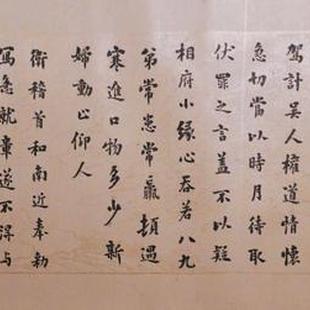 駕計吴人權道情懷
急切當以時月待取
伏罪之言蓋不以疑
相府小緣心吞若八九
弟常患常羸頓遇
寒進口物多少新
婦動止仰人
衛稽首和南近奉勅
寫急就章遂不得与